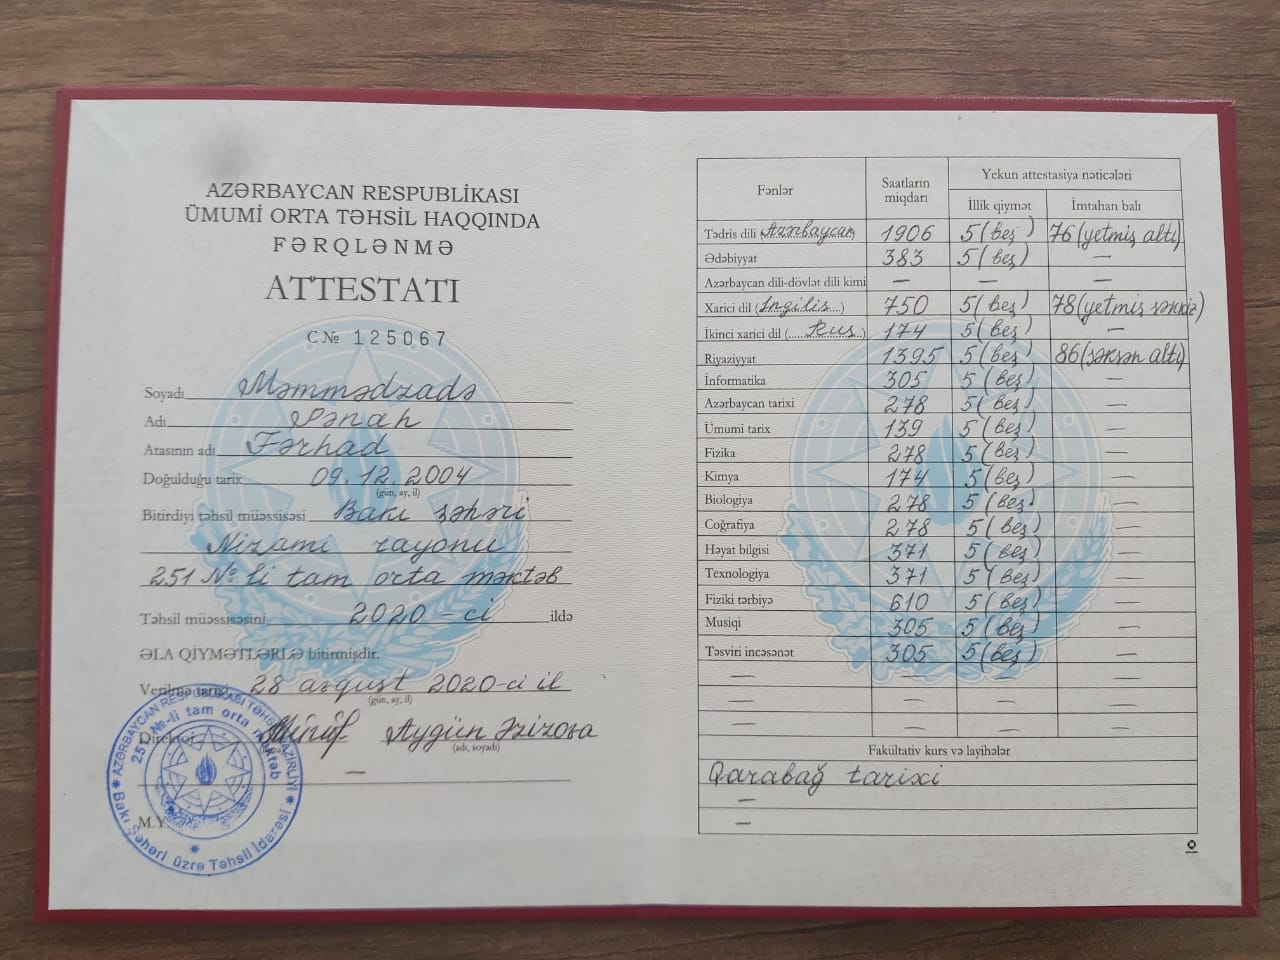 AZƏRBAYCAN RESPUBLİKASI
ÜMUMİ ORTA TƏHSİL HAQQINDA
FƏRQLƏNMƏ
ATTESTATI
C № 125067
Soyadı Məmmədzadə
Adı Pənah
Atasının adı Fərhad
Doğulduğu tarix 09.12.2004
(gün, ay, il)
Bitirdiyi təhsil müəssisəsi Bakı şəhəri
Nizami rayonu
251 №-li tam orta məktəb
Təhsil müəssisəsini 2020-ci ildə
ƏLA QİYMƏTLƏRLƏ bitirmişdir.
Verilmə tarixi 28 avqust 2020-ci il
(gün, ay, il)
Direktor Aygün Əzizova
(adı, soyadı)
M.Y.
AZƏRBAYCAN RESPUBLİKASI TƏHSİL NAZİRLİYİ
Bakı Şəhəri üzrə Təhsil İdarəsi
251 №-li tam orta məktəb
Fənlər Saatların miqdarı Yekun attestasiya nəticələri
İllik qiymət İmtahan balı
Tədris dili (Azərbaycan) 1906 5 (beş) 76 (yetmiş altı)
Ədəbiyyat 383 5 (beş) —
Azərbaycan dili-dövlət dili kimi — — —
Xarici dil (İngilis) 750 5 (beş) 78 (yetmiş səkkiz)
İkinci xarici dil (Rus) 174 5 (beş) —
Riyaziyyat 1395 5 (beş) 86 (səksən altı)
İnformatika 305 5 (beş) —
Azərbaycan tarixi 278 5 (beş) —
Ümumi tarix 139 5 (beş) —
Fizika 278 5 (beş) —
Kimya 174 5 (beş) —
Biologiya 278 5 (beş) —
Coğrafiya 278 5 (beş) —
Həyat bilgisi 371 5 (beş) —
Texnologiya 371 5 (beş) —
Fiziki tərbiyə 610 5 (beş) —
Musiqi 305 5 (beş) —
Təsviri incəsənət 305 5 (beş) —
— — — —
— — — —
— — — —
Fakültativ kurs və layihələr
Qarabağ tarixi
—
—